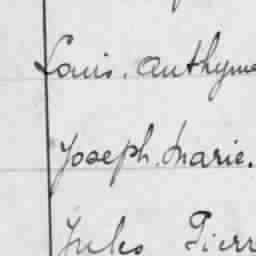 Louis. Anthyme
Joseph. Marie.
Jules Pierr